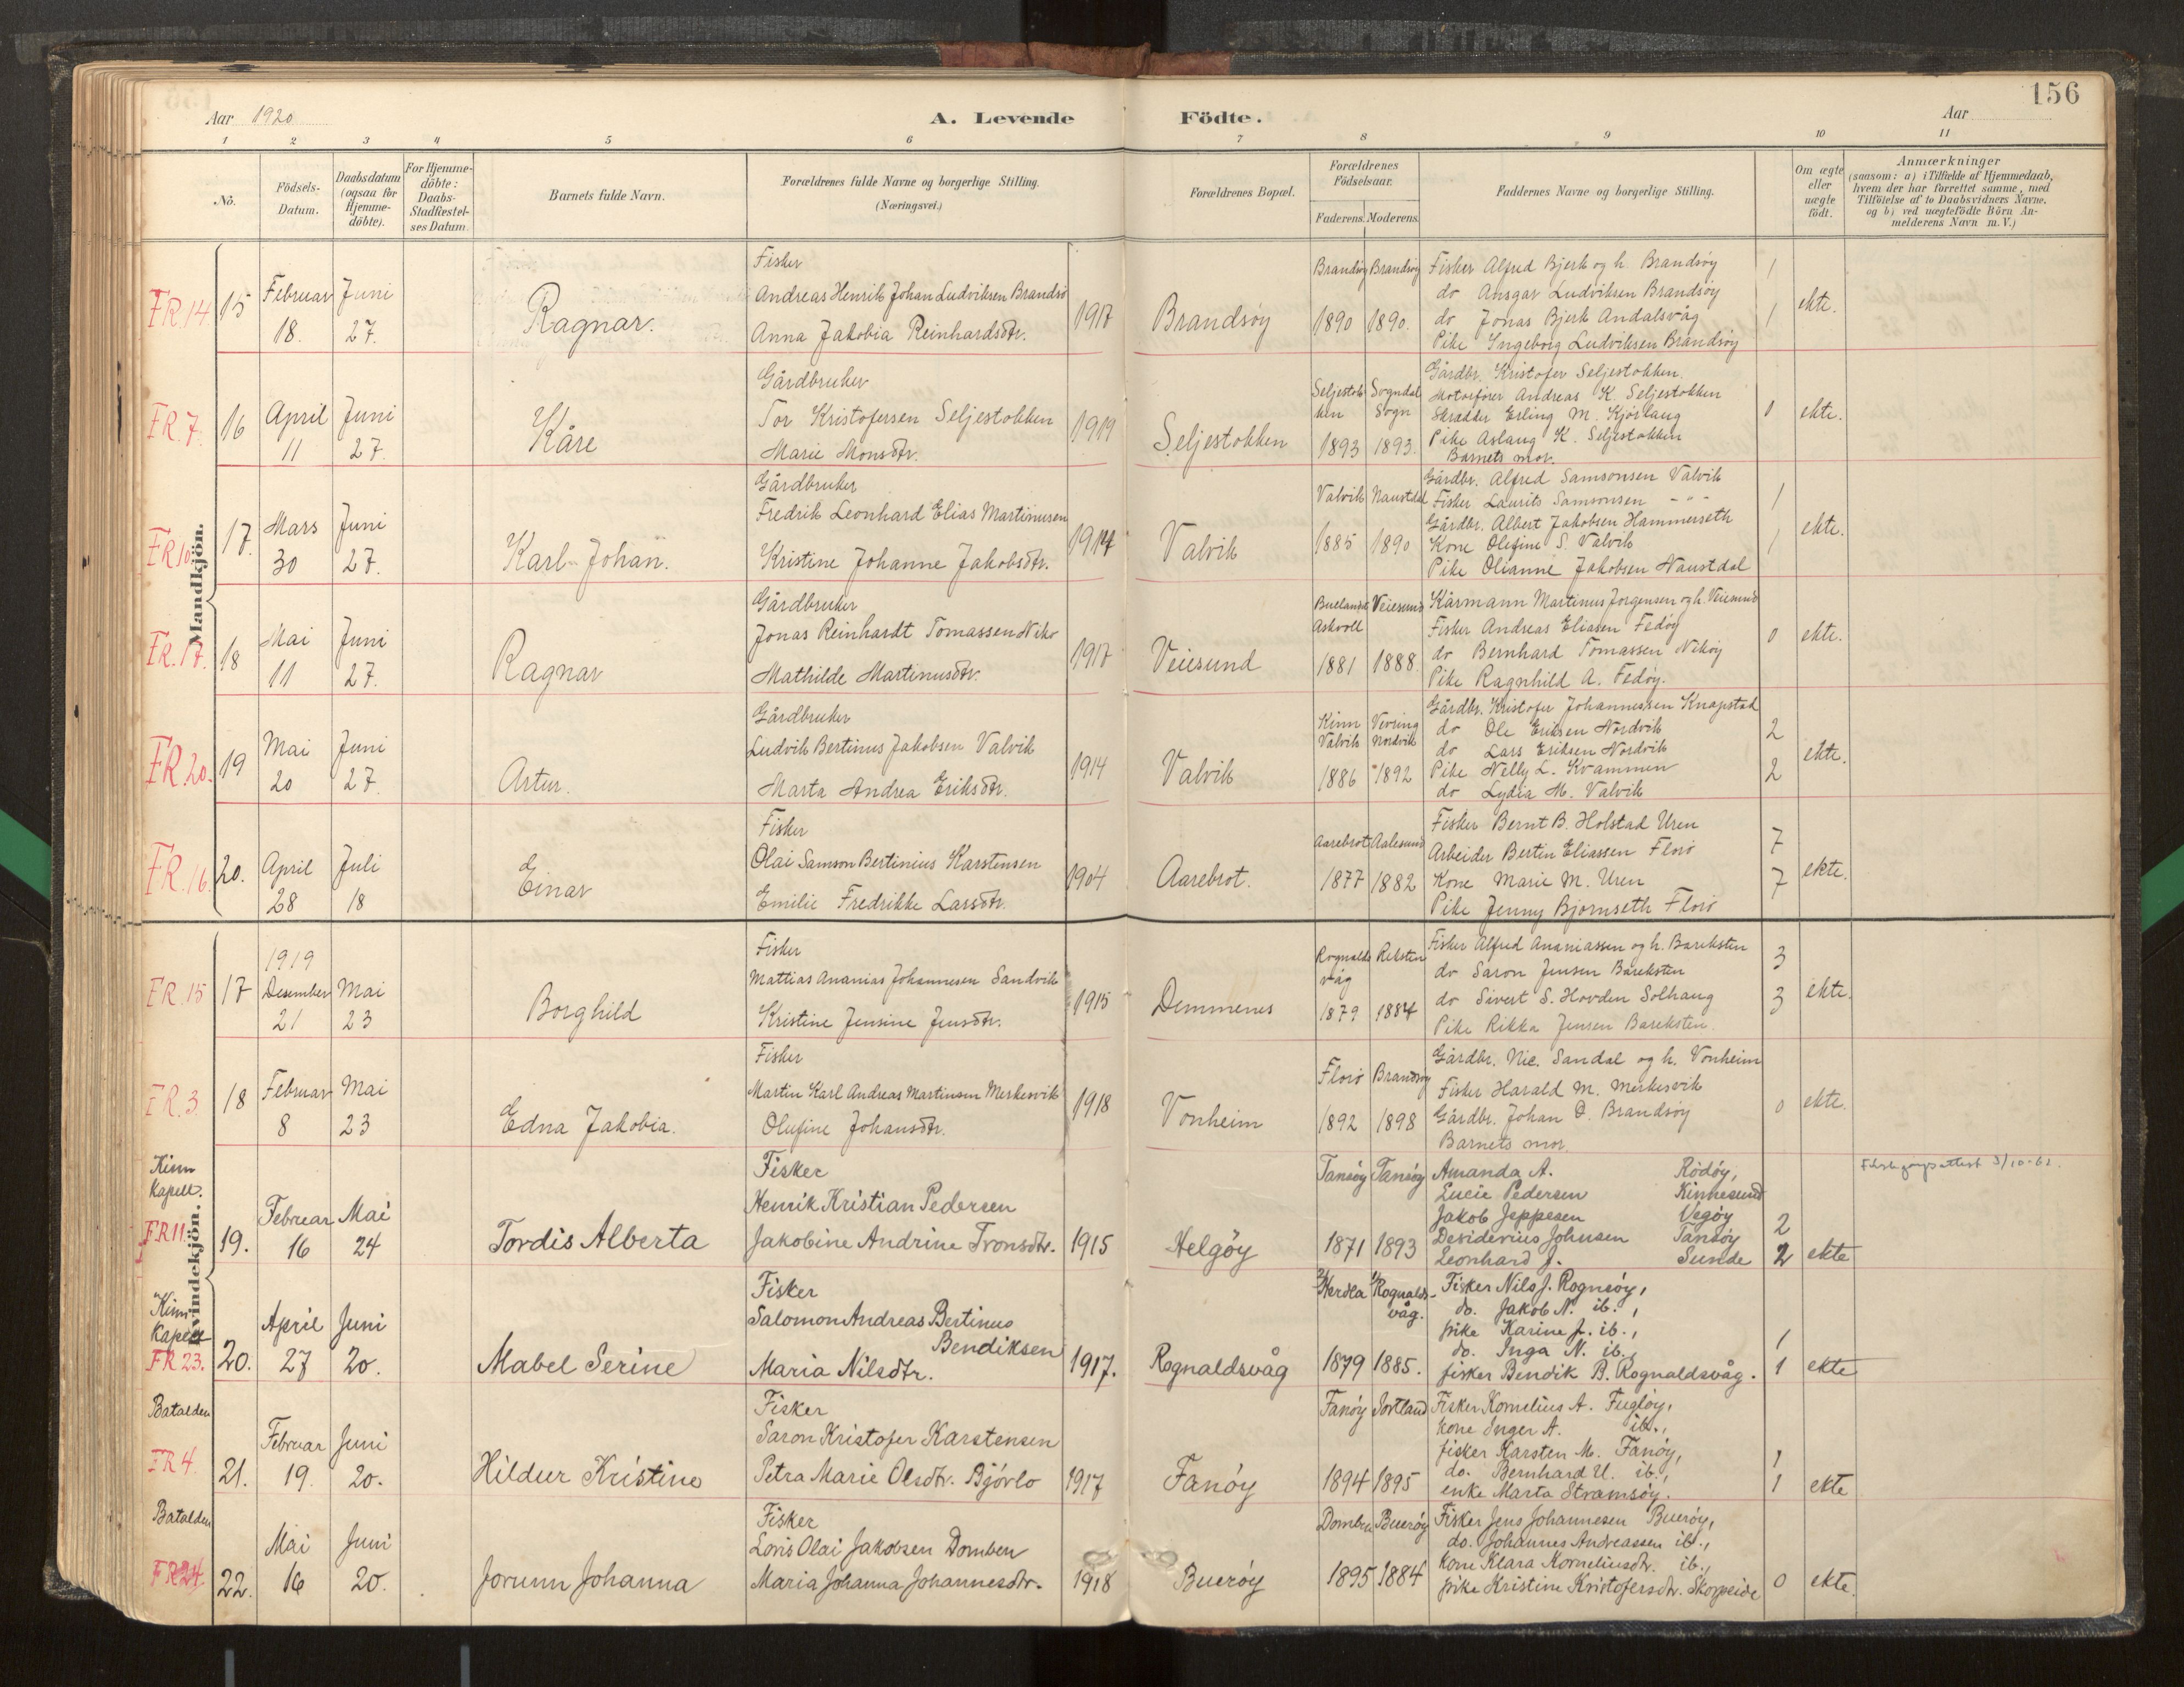 156
Aar 1920
A. Levende Födte.
Aar
1 2 3 4 5 6 7 8 9 10 11
No.
Födsels-Datum.
Daabsdatum (ogsaa for Hjemme-döbte).
For Hjemme-döbte: Daabs-Stadfæstel-ses Datum.
Barnets fulde Navn.
Forældrenes fulde Navne og borgerlige Stilling.
(Næringsvei.)
Forældrenes Bopæl.
Forældrenes Födselsaar.
Faderens. Moderens.
Faddernes Navne og borgerlige Stilling.
Om ægte eller uægte födt.
Anmærkninger
(saasom: a) i Tilfælde af Hjemmedaab,
hvem der har forrettet samme, med
Tilföielse af to Daabsvidners Navne,
og b) ved uægtefödte Börn An-
melderens Navn m. V.)
Mandkjön.
FR.14. 15 Februar 18. Juni 27.
Ragnar.
Fisker
Andreas Henrik Johan Ludviksen Brandsö
Anna Jakobia Reinhardsdtr.
1917
Brandsöy
Brandsöy Brandsöy
1890 1890.
Fisker Alfred Bjerk og h. Brandsöy
do Ansgar Ludviksen Brandsöy
do Jonas Bjerk Andalsvåg
Pike Ingeborg Ludviksen Brandsöy
1
1
ekte.
FR.7. 16 April 11 Juni 27.
Kåre
Gårdbruker
Tor Kristofersen Seljestokken
Marie Monsdtr.
1919
Seljestokken
Seljestokken Sogndal Sogn
1893 1893.
Gårdbr. Kristofer Seljestokken.
Motorförer Andreas K. Seljestokken
Skrædder Erling M. Kjörlaug
Pike Aslaug K. Seljestokken
Barnets mor.
0
ekte.
FR.10. 17. Mars 30 Juni 27.
Karl-Johan.
Gårdbruker
Fredrik Leonhard Elias Martinusen
Kristine Johanne Jakobsdtr.
1914
Valvik
Valvik Naustdal
1885 1890
Gårdbr. Alfred Samsonsen Valvik
Fisker Laurits Samsonsen - " -
Gårdbr. Albert Jakobsen Hammerseth
Kone Olefine S. Valvik
Pike Olianne Jakobsen Naustdal
1
1
ekte.
FR.17. 18 Mai 11 Juni 27.
Ragnar
Gårdbruker
Jonas Reinhardt Tomassen Nikö
Mathilde Martinusdtr.
1917
Veiesund
Buelandet Askvoll Veiesund
1881 1888.
Kårmann Martinus Jorgensen og h. Veiesund
Fisker Andreas Eliasen Fedöy
do Bernhard Tomassen Niköy
Pike Ragnhild A. Fedöy.
0
ekte.
FR.20. 19 Mai 20 Juni 27.
Artur.
Gårdbruker
Ludvik Bertinus Jakobsen Valvik
Marta Andrea Eriksdtr.
1914
Valvik
Kinn Valvik Vevring Nordvik
1886 1892
Gårdbr. Kristofer Johannessen Knapstad
do Ole Eriksen Nordvik
do Lars Eriksen Nordvik
Pike Nelly L. Kvammen
do Lydia M. Valvik
2
2
ekte.
FR.16. 20. April 28 Juli 18
Einar
Fisker
Olai Samson Bertinius Karstensen
Emilie Fredrikke Larsdtr.
1904
Aarebrot.
Aarebrot Aalesund
1877 1882
Fisker Bernt B. Holstad Uren
Arbeider Bertin Eliassen Florö
Kone Marie M. Uren
Pike Jenny Bjornseth Florö
7
7
ekte.
Kvindekjön.
FR.15 17 1919 Desember 21 Mai 23
Borghild
Fisker
Mattias Ananias Johannesen Sandvik
Kristine Jensine Jensdtr.
1915
Demmenes
Rognalds våg Reksten
1879 1884
Fisker Alfred Ananiassen og h. Bareksten
do Saron Jensen Bareksten
do Sivert S. Hovden Solhaug
Pike Rikka Jensen Bareksten.
3
3
ekte.
FR.3. 18 Februar 8 Mai 23
Edna Jakobia.
Fisker
Martin Karl Andreas Martinsen Merkesvik
Olufine Johansdtr.
1918
Vonheim
Florö Brandsöy
1892 1898
Gårdbr. Nic. Sandal og h. Vonheim
Fisker Harald M. Merkesvik
Gårdbr. Johan D. Brandsöy
Barnets mor.
0
ekte.
Kinn Kapell.
FR11. 19. Februar 16 Mai 24
Tordis Alberta
Fisker
Henrik Kristian Pedersen
Jakobine Andrine Tronsdtr.
1915
Helgöy
Tansöy Tansöy
1871 1893
Amanda A. Rödöy,
Lucie Pedersen Kinnesund
Jakob Jeppesen Vegöy
Desiderius Johnsen Tansöy
Leonhard J. Sunde
2
2
ekte
3/10-62.
Kinn Kapell
FR 23. 20. April 27 Juni 20.
Mabel Serine
Fisker
Salomon Andreas Bertinus
Bendiksen
Maria Nilsdtr.
1917.
Rognaldsvåg
Herdla Rognalds-våg.
1879 1885.
Fisker Nils J. Rognsöy,
do. Jakob N. ib.,
pike Karine J. ib.,
do. Inga N. ib.,
fisker Bendik B. Rognaldsvåg.
1
1
ekte
Batalden
FR 4. 21. Februar 19. Juni 20.
Hildur Kristine
Fisker
Saron Kristofer Karstensen
Petra Marie Olsdtr. Björlo
1917
Fanöy
Fanöy Sortland
1894 1895
Fisker Kornelius A. Fuglöy,
kone Inger A. ib.,
fisker Karsten M. Fanöy,
do. Bernhard U. ib.,
enke Marta Stramsöy.
1
1
ekte
Batalden
FR24. 22. Mai 16 Juni 20.
Jorunn Johanna
Fisker
Loris Olai Jakobsen Domben
Maria Johanna Johannesdtr.
1918
Bueröy
Domben Bueröy
1895 1884
Fisker Jens Johannesen Bueröy,
do. Johannes Andreassen ib.,
kone Klara Korneliusdtr. ib.,
pike Kristine Kristofersdtr. Skorpeide
0
ekte.